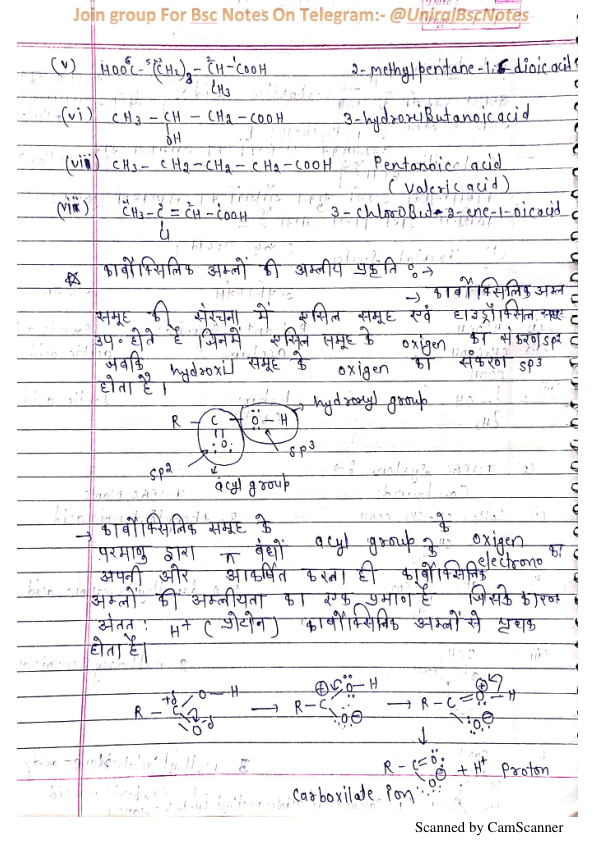 Join group For Bsc Notes On Telegram:- @UnirajBscNotes
(v) HOOC⁶-⁵(CH₂)₃-²CH-¹COOH 2-methylpentane-1,6-dioicacid
CH₃
(vi) CH₃-CH-CH₂-COOH 3-hydroxiButanoicacid
OH
(vii) CH₃-CH₂-CH₂-CH₂-COOH Pentanoic acid
(valeric acid)
(viii) ⁴CH₃-³C=²CH-¹COOH 3-chloroBut-2-ene-1-oicacid
Cl
कार्बोक्सिलिक अम्लों की अम्लीय प्रकृति :→
→ कार्बोक्सिलिक अम्ल
समूह की संरचना में एसिल समूह एवं हाइड्रॉक्सिल समूह
उप॰ होते है जिनमें एसिल समूह के oxigen का संकरण sp2
जबकि hydroxil समूह के oxigen का संकरण sp3
होता है।
→ hydroxyl group
R - C - O - H
O
sp² sp³
acyl group
→ कार्बोक्सिलिक समूह के के
परमाणु द्वारा π बंधों acyl group के oxigen का
अपनी ओर आकर्षित करना ही कार्बोक्सिलिक electrono
अम्लों की अम्लीयता का एक प्रमाण है जिसके कारण
अंततः H⁺ (प्रोटोन) कार्बोक्सिलिक अम्लों से पृथक
होता है।
R-C O-H → R-C O-H → R-C=O-H
O O O
↓
R-C=O + H⁺ Proton
O
Carboxilate Ion
Scanned by CamScanner